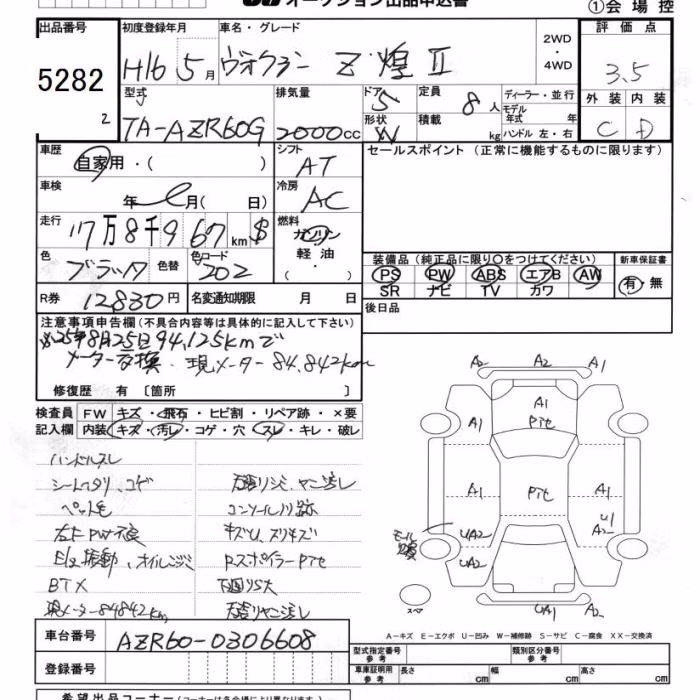 オークション出品申込書
①会場控
出品番号
5282
2
初度登録年月
H16 5月
車名・グレード
ヴォクシー Z 煌 Ⅱ
2WD
・
4WD
評価点
3.5
外装 内装
C D
型式
TA-AZR60G
排気量
2000cc
ドア
5
形状
W
定員
8人
積載
kg
ディーラー・並行
モデル年式 年
ハンドル 左・右
車歴
自家用・( )
シフト
AT
セールスポイント (正常に機能するものに限ります)
車検
年 月( 日)
冷房
AC
走行
17万8千967km $
燃料
ガソリン
軽油
( ・ )
色
ブラック
色替
色コード
202
装備品 (純正品に限り○をつけてください)
PS PW ABS エアB AW
SR ナビ TV カワ
新車保証書
有・無
R券 12830円
名変通知期限 月 日
後日品
注意事項申告欄 (不具合内容等は具体的に記入して下さい)
※25年8月25日94,125kmで
メーター交換 現メーター84,842km
修復歴 有 〔箇所 〕
検査員
記入欄
FW キズ・飛石・ヒビ割・リペア跡・×要
内装 キズ・汚レ・コゲ・穴・スレ・キレ・破レ
ハンドルスレ
シートヘタリ、コゲ
ペット毛
コンソール
キズU、スリキズ
E/g振動、オイルニジミ
RスポイラーPイセ
BTX
下回りSス
現メーター84842km
A2 A2 A1
A1
A1
A1 A1
U1
A2
UA2
UA2
UA1 A2
スペア
A-キズ E-エクボ U-凹み W-補修跡 S-サビ C-腐食 XX-交換済
車台番号
AZR60-0306608
登録番号
型式指定番号
参考
類別区分番号
参考
車車証明用
参考
長さ cm 幅 cm 高さ cm
希望出品コーナー (コーナーは各会場により異なります)